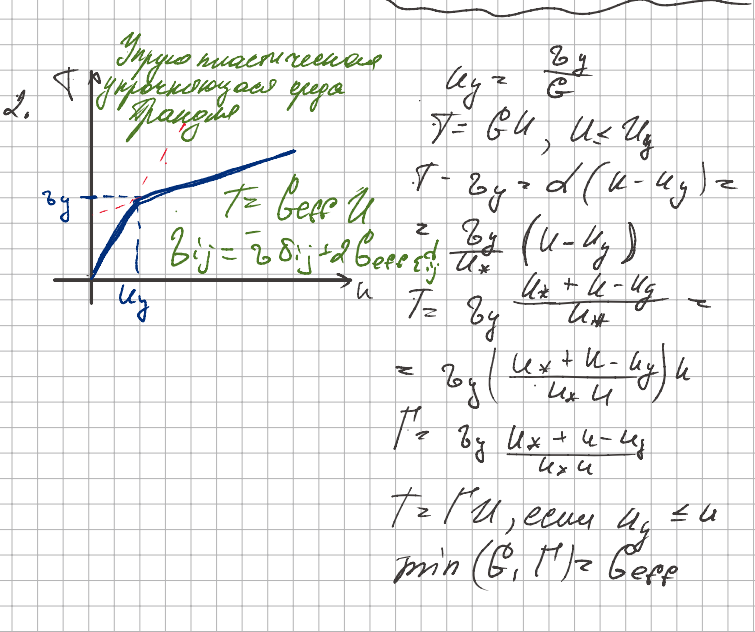 2.
Упруго пластическая
упрочняющаяся среда
Прандтля
T
τy
uy
u
T = Geff u
σij = σ̄ δij + 2 Geff εij^d
uy = τy / G
T = G u , u ≤ uy
T - τy = α (u - uy) =
= τy / u* (u - uy)
T = τy (u* + u - uy) / u* =
= τy ( (u* + u - uy) / (u* u) ) u
Г = τy (u* + u - uy) / (u* u)
T = Г u , если uy ≤ u
min (G, Г) = Geff